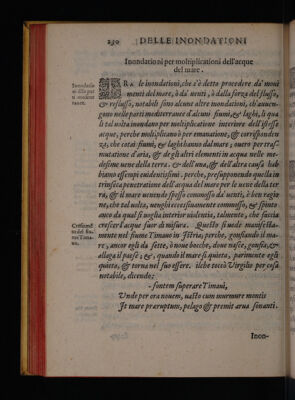 230 DELLE INONDATIONI
Inondationi per moltiplicationi dell'acque
del mare.
Inondatio
ni dilla par
ti mediterranee.
TRA le inondationi, che s'è detto procedere da' moti
menti del mare, ò da' uenti, ò dalla forza del flusso,
& reflusso, notabili sono alcune altre inondationi, ch'auuen-
gono nelle parti mediterranee d'alcuni fiumi, & laghi, li qua
li tal uolta inondano per moltiplicatione interiore dell'istesse
acque, perche moltiplicano ò per emanatione, & corrisponden
za, che cotai fiumi, & laghi hanno dal mare; ouero per tras-
mutatione d'aria, & de gli altri elementi in acqua nelle me-
desime uene della terra. & dell'una, & dell'altra causa hab
biamo essempi euidentissimi. perche, presupponendo quella in
trinseca penetratione dell'acqua del mare per le uene della ter
ra, & il mare uenendo spesso commosso da' uenti, è ben ragio
ne, che tal uolta, uenghi eccessiuamente commosso, & spinto
anco da qual si uoglia interior uiolentia, talmente, che faccia
crescer l'acque fuor di misura. Questo si uede manifesta-
mente nel fiume Timauo in Istria, perche, gonfiando il ma-
re, ancor egli da sette, ò noue bocche, doue nasce, gonfia, &
alluga il paese; &, quando il mare si quieta, parimente egli
quieta, & torna nel suo essere. il che toccò Virgilio per cosa
notabile, dicendo;
Crescimē
to del fiu-
me Tima-
uo.
- fontem superare Timaui,
Vnde per ora nouem, uasto cum murmure montis
It mare præruptum, pelago & premit arua sonanti.
Inon-